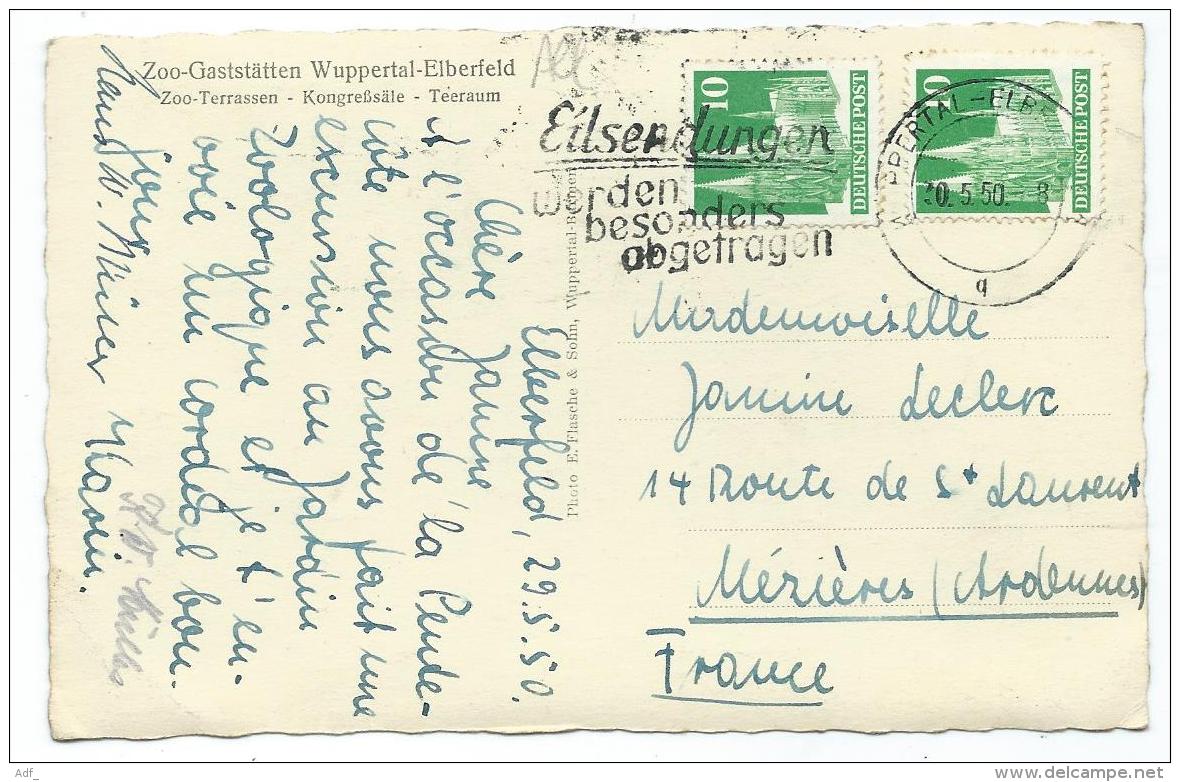 Zoo-Gaststätten Wuppertal-Elberfeld
Zoo-Terrassen - Kongreßsäle - Teeraum
Elberfeld, 29.5.50.
Chère Janine
A l'occasion de la Pente-
côte nous avons fait une
excursion au Jardin
Zoologique et je t'en-
voie un cordial bon-
jour
Photo E. Flasche & Sohn, Wuppertal-Barmen
Eilsendungen
werden
besonders
abgetragen
10
DEUTSCHE POST
10
DEUTSCHE POST
WUPPERTAL-ELBE
30.5.50.-8
q
Mademoiselle
Janine Leclerc
14 Route de St Laurent
Mézières (Ardennes)
France
Adf_
delcampe.net